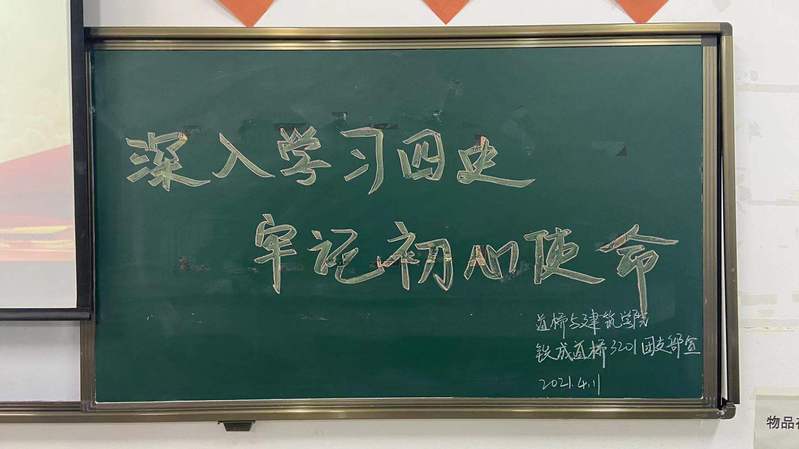 深入学习四史
牢记初心使命
道桥与建筑学院
铁成道桥3201团支部宣
2021.4.11
物品